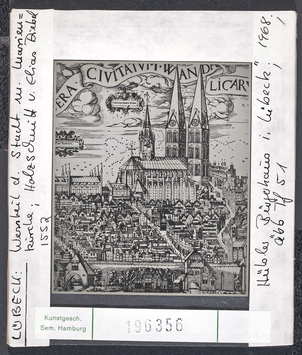 LÜBECK: Westteil d. Stadt m. Marien=
kirche; Holzschnitt v. Elias Diebel
1552
ERA CIVITATUM WANDALICAR
Hübler, Bürgerhaus i. Lübeck", 1968,
Abb 51
Kunstgesch.
Sem. Hamburg
196356